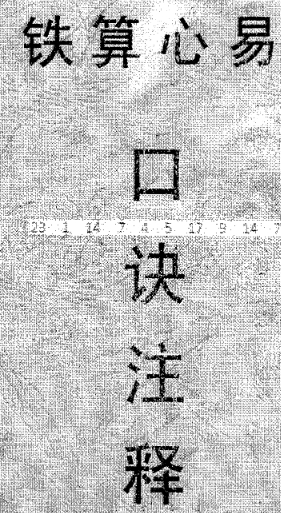 铁算心易
口
诀
注
释
23 1 14 7 4 5 17 9 14 7